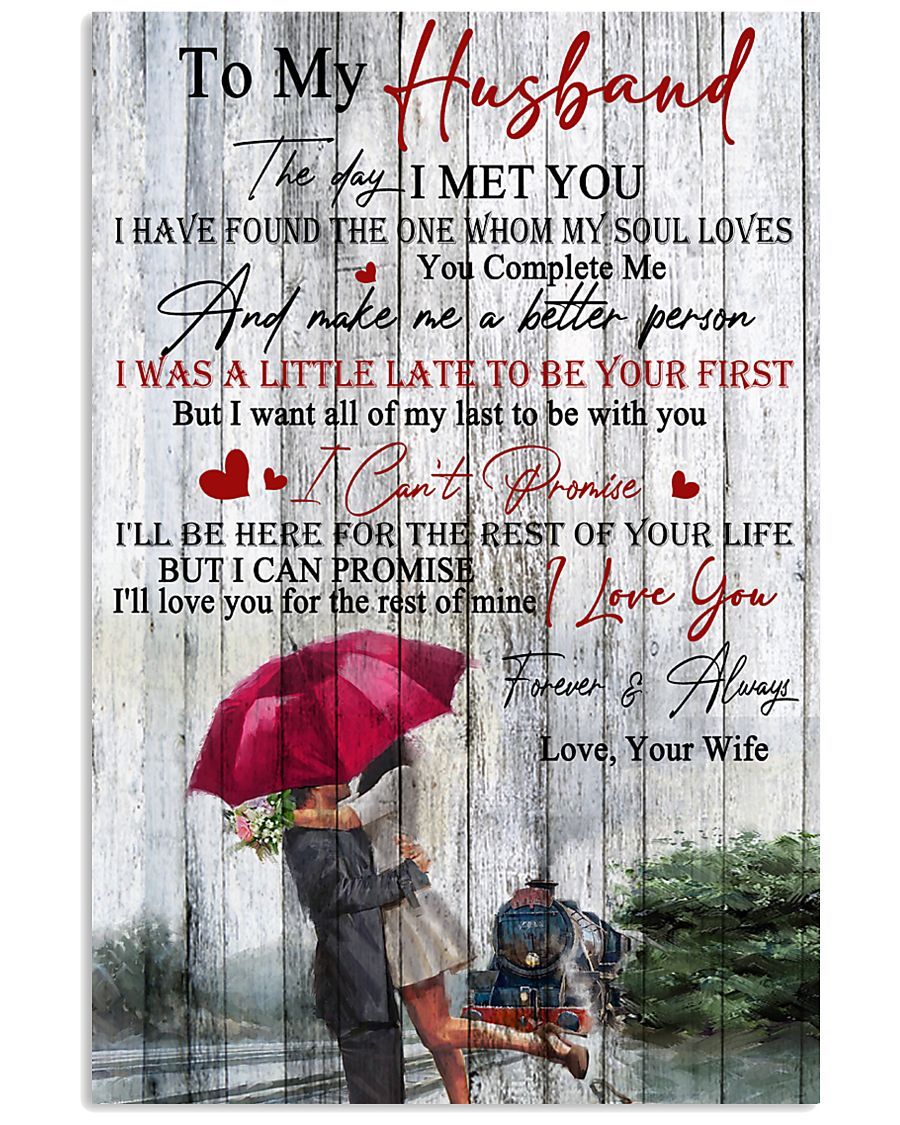 To My Husband
The day I MET YOU
I HAVE FOUND THE ONE WHOM MY SOUL LOVES
You Complete Me
And make me a better person
I WAS A LITTLE LATE TO BE YOUR FIRST
But I want all of my last to be with you
I Can't Promise
I'LL BE HERE FOR THE REST OF YOUR LIFE
BUT I CAN PROMISE
I'll love you for the rest of mine I Love You
Forever & Always
Love, Your Wife